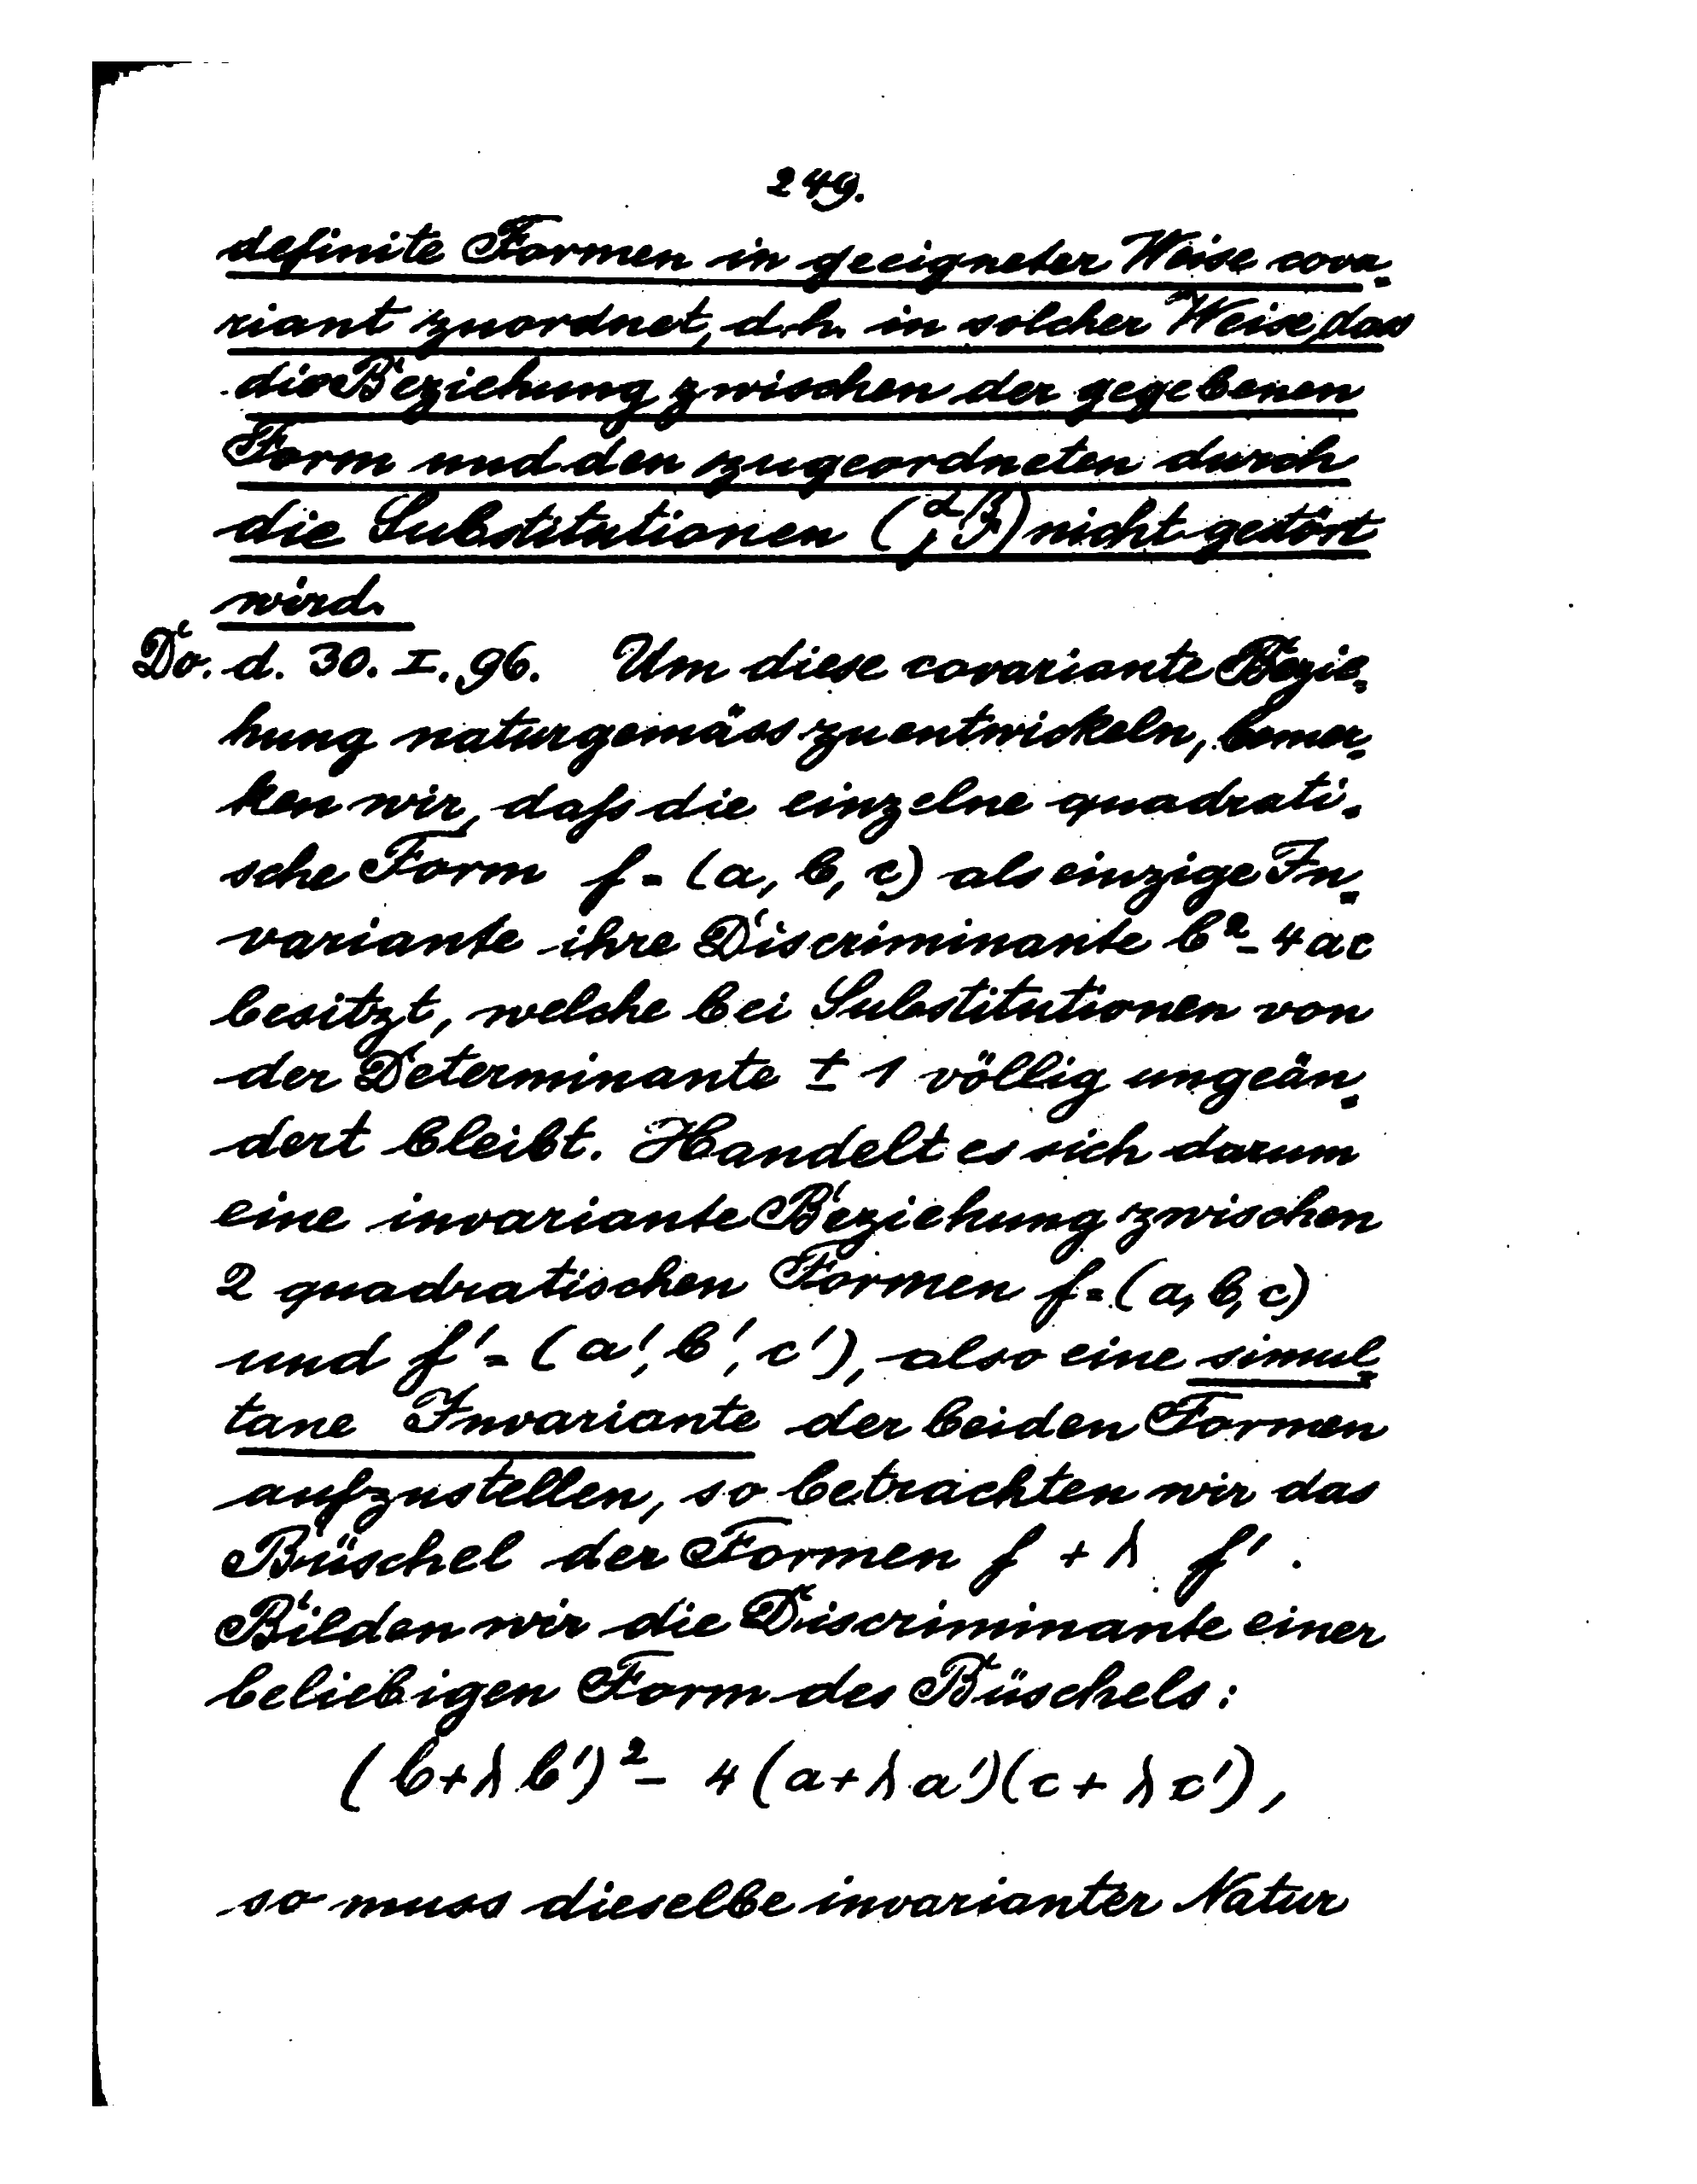 249.
definite Formen in geeigneter Weise cova-
riant zuordnet, d.h. in solcher Weise, das
die Beziehung zwischen der gegebenen
Form und den zugeordneten durch
die Substitutionen (α β γ δ) nicht gestört
wird.
Do. d. 30. I. 96. Um diese covariante Bezie-
hung naturgemäss zu entwickeln, bemer-
ken wir, daß die einzelne quadrati-
sche Form f = (a, b, c) als einzige In-
variante ihre Discriminante b² - 4ac
besitzt, welche bei Substitutionen von
der Determinante ± 1 völlig ungeän-
dert bleibt. Handelt es sich darum
eine invariante Beziehung zwischen
2 quadratischen Formen f = (a, b, c)
und f' = (a', b', c'), also eine simul-
tane Invariante der beiden Formen
aufzustellen, so betrachten wir das
Büschel der Formen f + λ f'.
Bilden wir die Discriminante einer
beliebigen Form des Büschels:
(b + λ b')² - 4 (a + λ a')(c + λ c'),
so muss dieselbe invarianter Natur